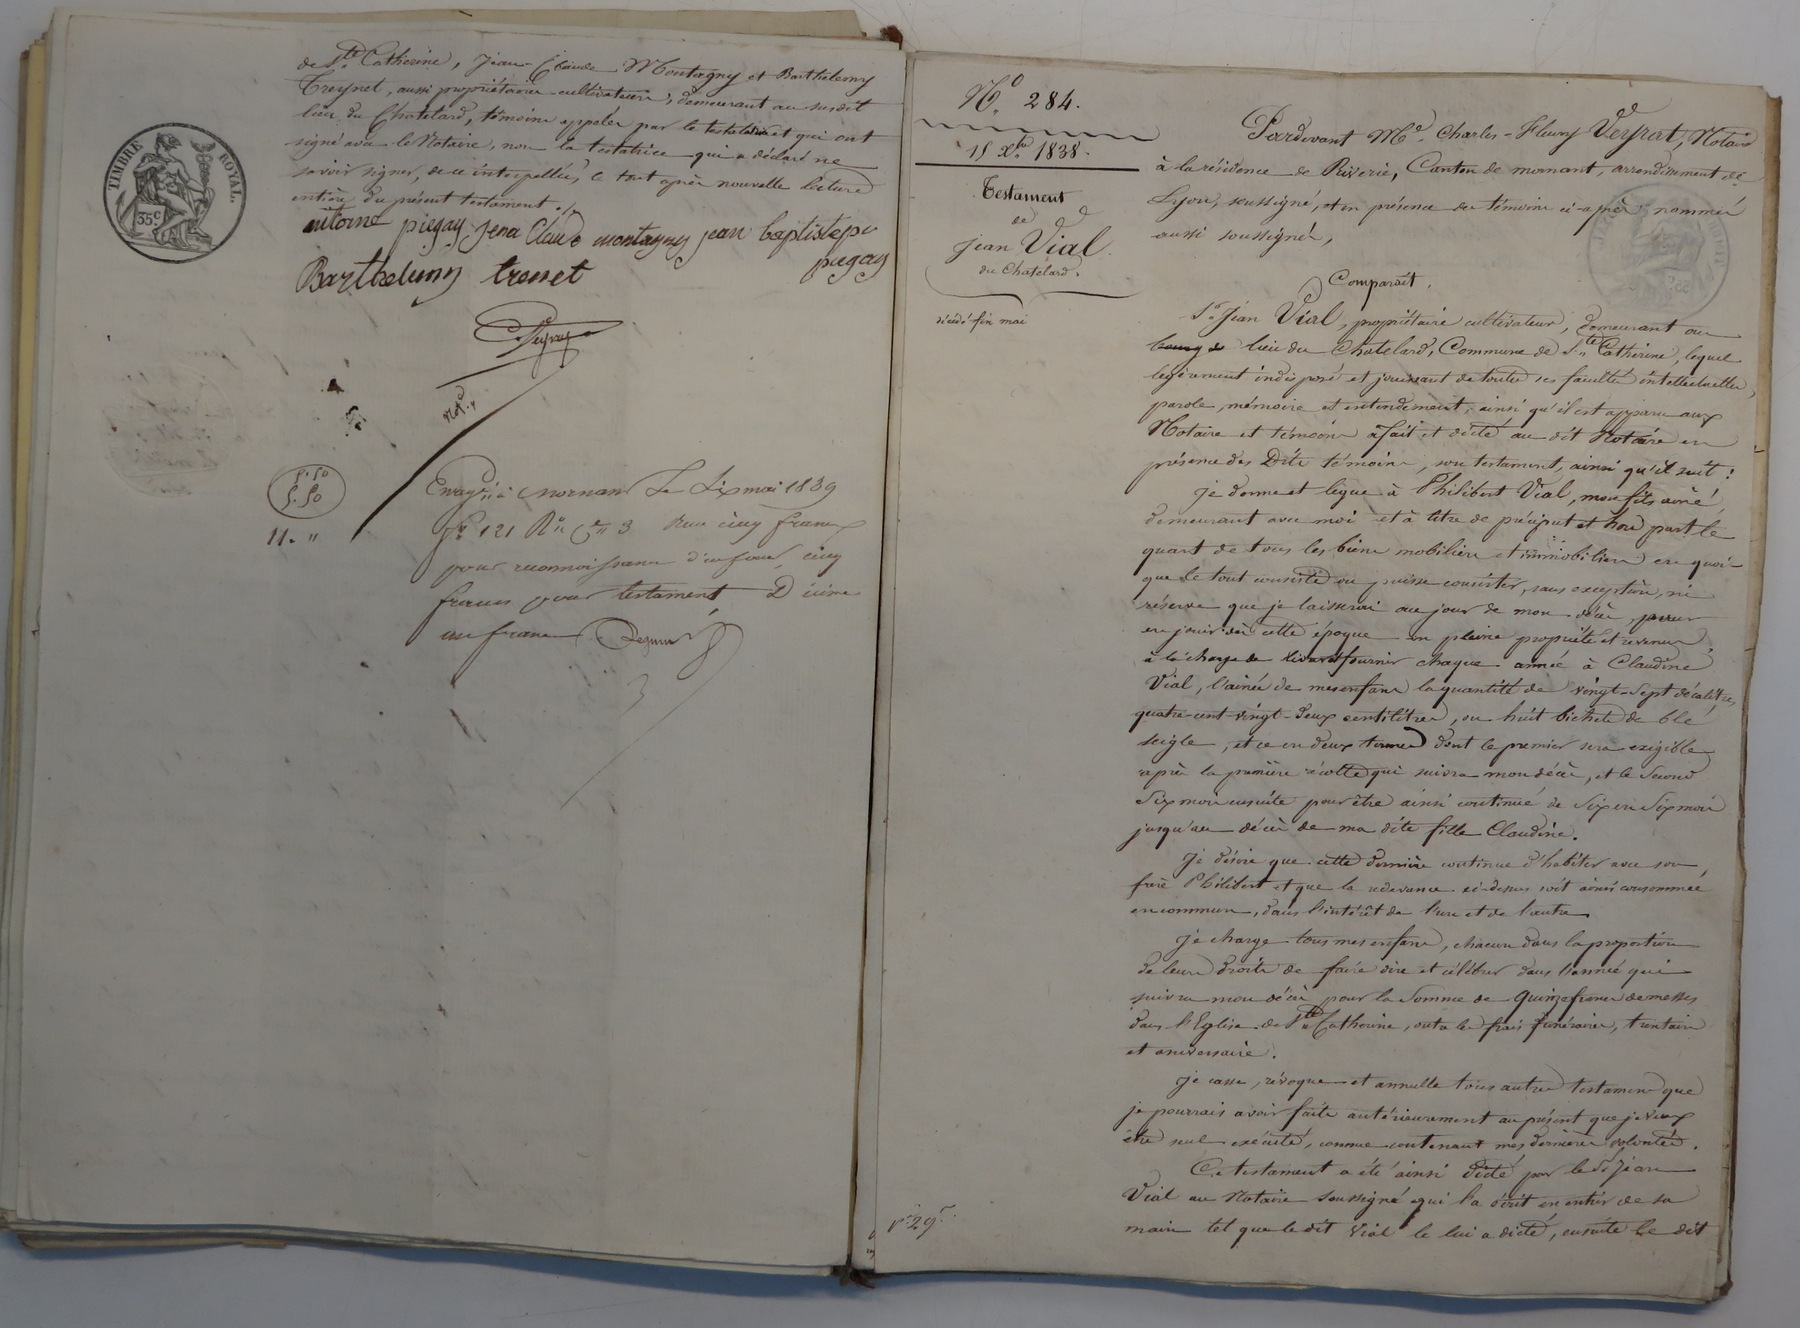 de Ste Catherine, Jean-Claude Montagny et Barthélemy
Treynet, aussi propriétaires cultivateurs, demeurant au susdit
lieu du Chatelard, témoins appelés par la testatrice et qui ont
signé avec le Notaire, non la testatrice qui a déclaré ne
savoir signer, de ce interpellée, le tout après nouvelle lecture
entière du présent testament ./.
antoine piegay jena Claude montagny jean baptiste pi
piegay
Barthelemy trenet
TIMBRE ROYAL
35c
Veyrat
Not.
5.50
5.50
11. "
Enregé à Mornant le dix mai 1839
fo 121 Ro Ce 3 Reçu cinq francs
pour reconnoissance d'enfant, cinq
francs pour testament, Décime
un franc
No. 284.
15 Xbre 1838.
Testament
de
Jean Vial
du Chatelard.
décédé fin mai
Pardevant Me. Charles-Fleury Veyrat, Notaire
à la résidence de Riverie, Canton de mornant, arrondissement de
Lyon, soussigné, et en présence des témoins ci-après nommés
aussi soussignés,
Comparaît,
Sr. Jean Vial, propriétaire cultivateur, demeurant au
bourg de lieu du Chatelard, Commune de Ste Catherine, lequel
legèrement indisposé et jouissant de toutes ses facultés intellectuelles,
parole, mémoire et entendement, ainsi qu'il est apparu aux
Notaire et témoins a fait et dicté au dit Notaire en
présence des Dits témoins, son testament, ainsi qu'il suit :
Je donne et lègue à Philibert Vial, mon fils ainé,
demeurant avec moi et à titre de préciput et hors part le
quart de tous les biens mobiliers et immobiliers en quoi-
que le tout consiste ou puisse consister, sans exception, ni
réserve que je laisserai au jour de mon décès, pour
en jouir dès cette époque en pleine propriété et revenus,
à la charge de livrer et fournir chaque année à Claudine
Vial, l'ainée de mes enfans la quantité de vingt-sept décalitres,
quatre cent vingt-deux centilitres, ou huit bichets de blé
seigle, et ce en deux termes dont le premier sera exigible
après la première récolte qui suivra mon décès, et le Second
Six mois ensuite pour être ainsi continué de Six en Six mois
jusqu'au décès de ma dite fille Claudine.
Je désire que cette dernière continue d'habiter avec son
frère Philibert et que la redevance ci-dessus soit ainsi consommée
en commun, dans l'intérêt de l'un et de l'autre.
Je charge tous mes enfans, chacun dans la proportion
de leurs droits de faire dire et célébrer dans l'année qui
suivra mon décès pour la Somme de Quinze francs de messes
dans l'Eglise de Ste Catherine, outre les frais funéraires, trentain
et aniversaire.
Je casse, révoque et annulle tous autres testamens que
je pourrais avoir faits antérieurement au présent que je veux
être seul exécuté, comme contenant mes dernières volontés.
Ce testament a été ainsi dicté par le Sr Jean
Vial au Notaire soussigné qui l'a écrit en entier de sa
main tel que le dit Vial le lui a dicté, ensuite le dit